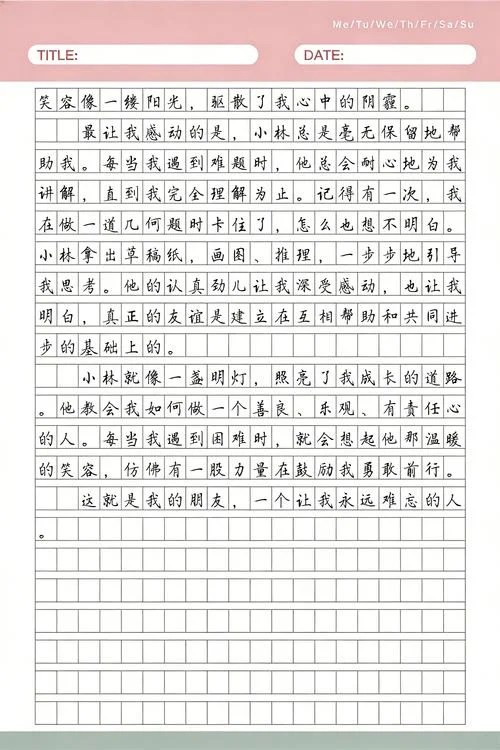 Me/Tu/We/Th/Fr/Sa/Su
TITLE: DATE:
笑容像一缕阳光，驱散了我心中的阴霾。
最让我感动的是，小林总是毫无保留地帮
助我。每当我遇到难题时，他总会耐心地为我
讲解，直到我完全理解为止。记得有一次，我
在做一道几何题时卡住了，怎么也想不明白。
小林拿出草稿纸，画图、推理，一步步地引导
我思考。他的认真劲儿让我深受感动，也让我
明白，真正的友谊是建立在互相帮助和共同进
步的基础上的。
小林就像一盏明灯，照亮了我成长的道路
。他教会我如何做一个善良、乐观、有责任心
的人。每当我遇到困难时，就会想起他那温暖
的笑容，仿佛有一股力量在鼓励我勇敢前行。
这就是我的朋友，一个让我永远难忘的人
。